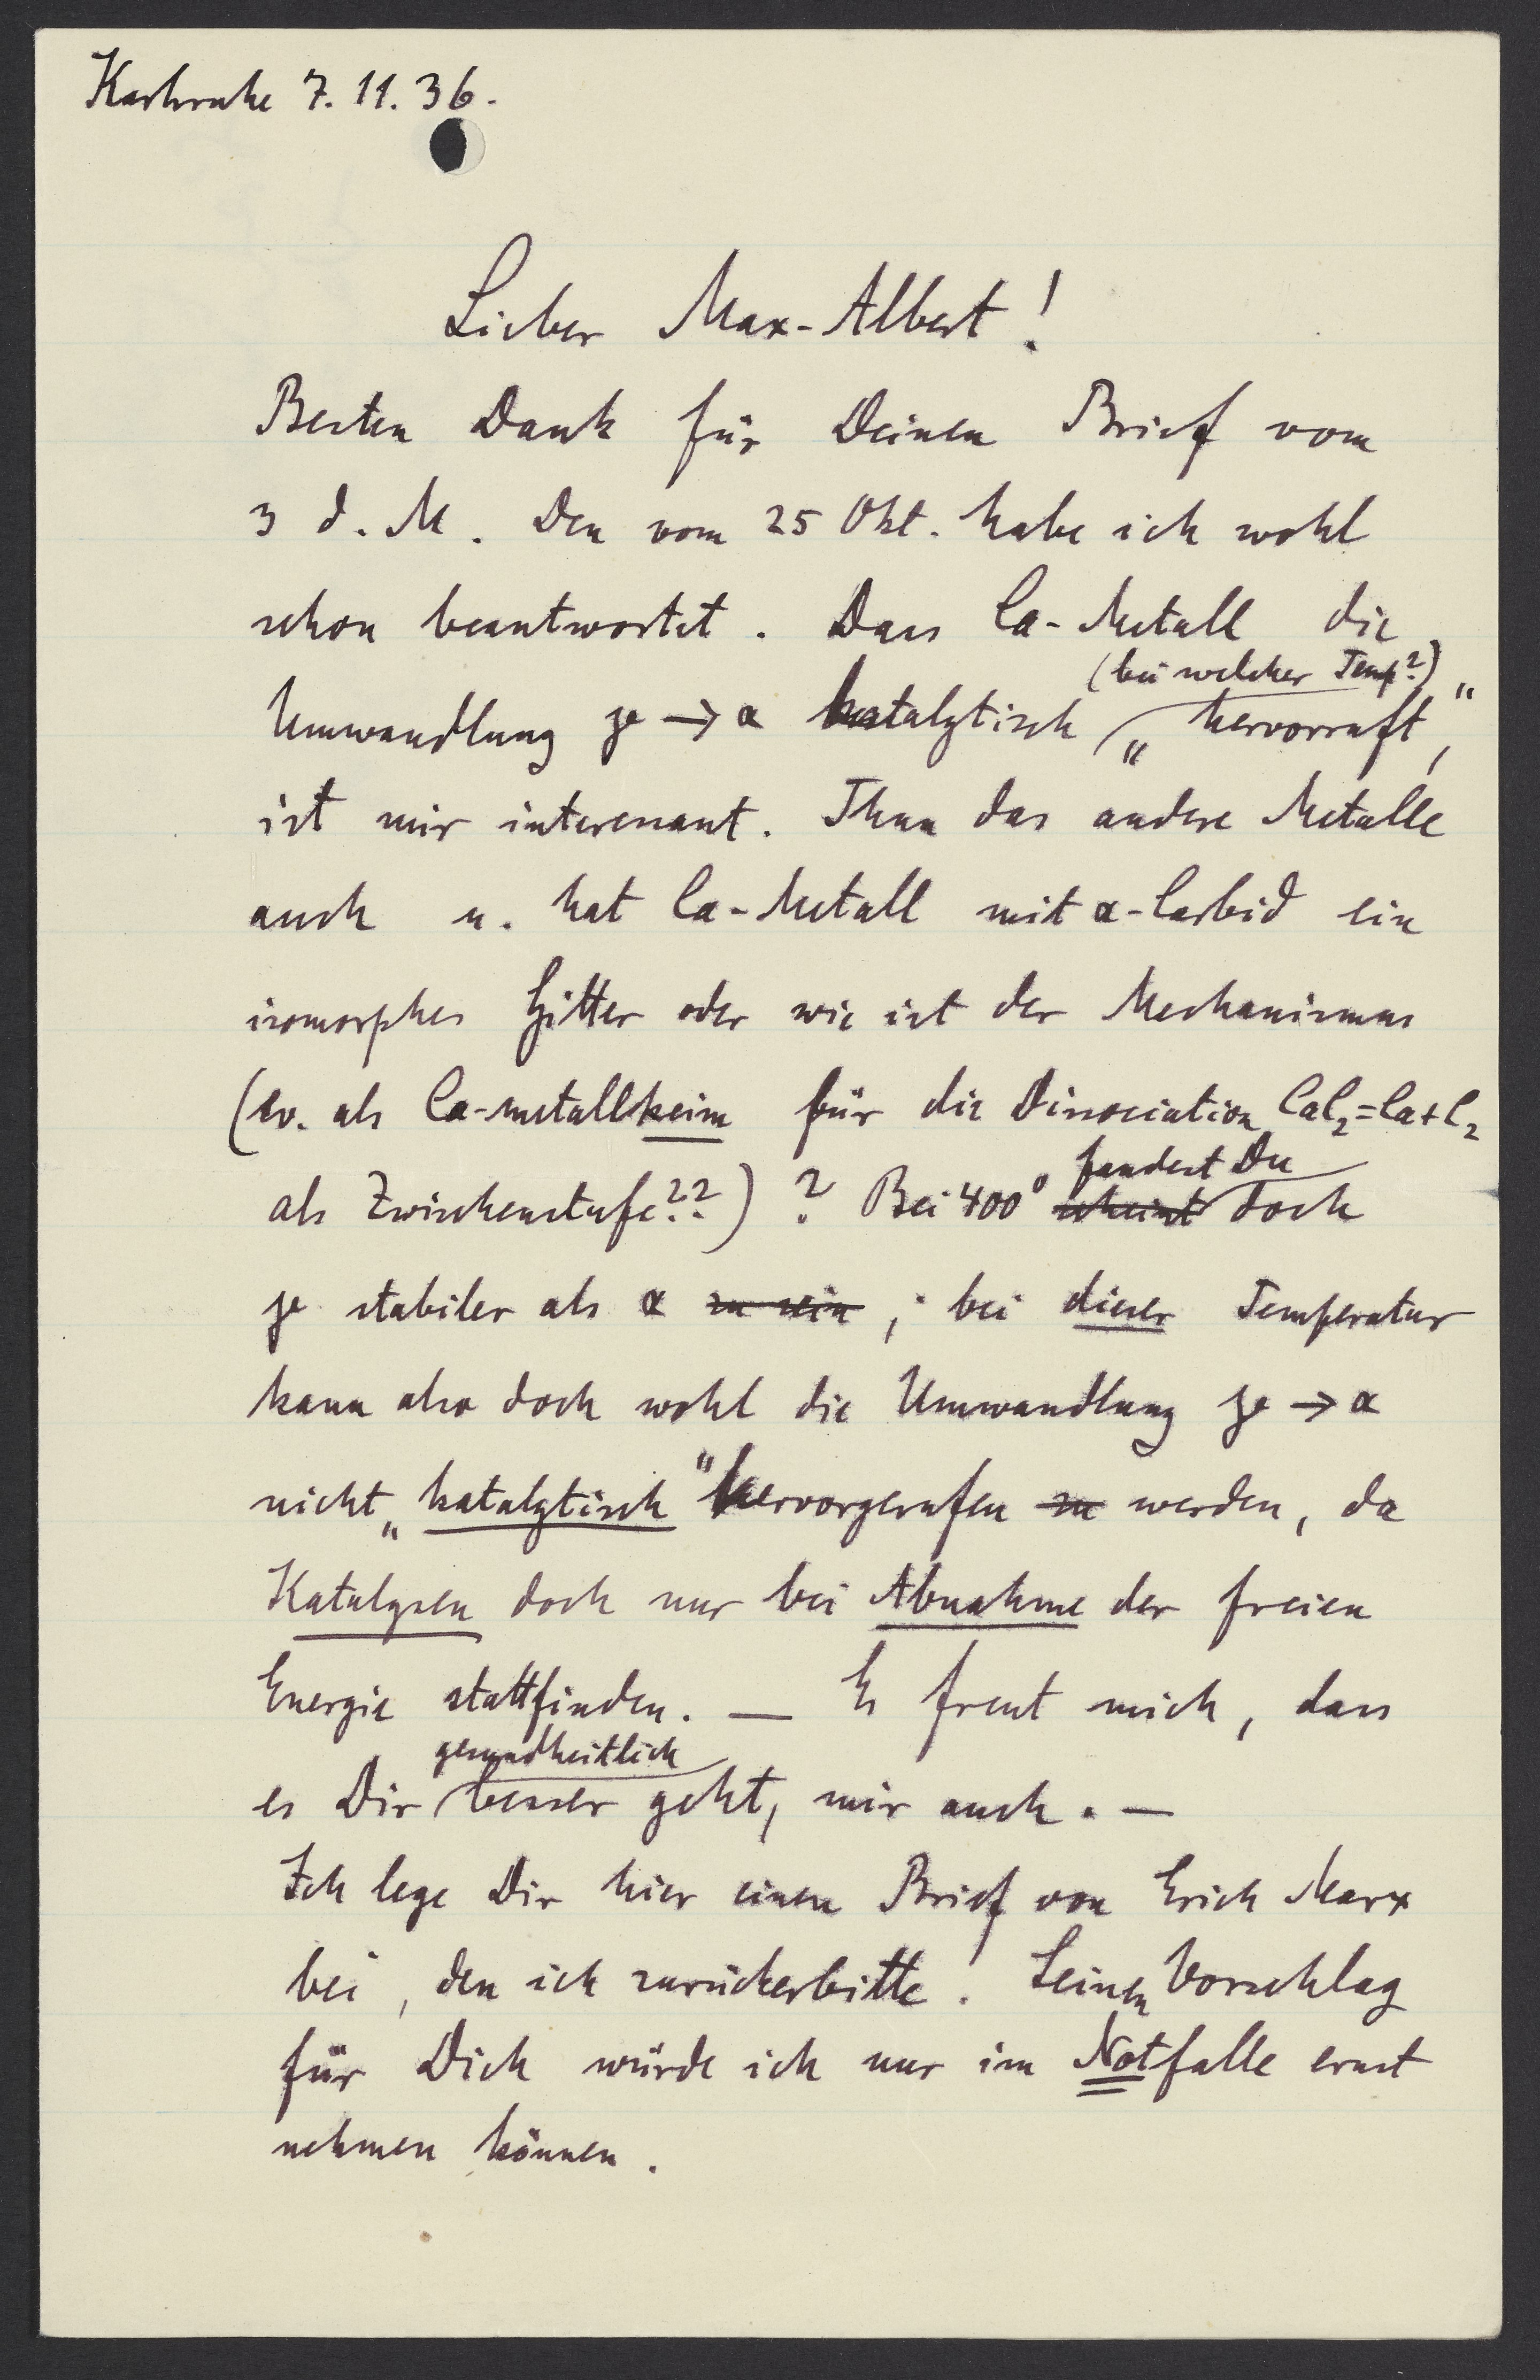 Karlsruhe 7. 11. 36.
Lieber Max-Albert!
Besten Dank für Deinen Brief vom
3 d. M. Den vom 25 Okt. habe ich wohl
schon beantwortet. Dass Ca-Metall die
(bei welcher Temp?)
Umwandlung γ → α katalytisch „hervorruft“,
ist mir interessant. Thun das andere Metalle
auch u. hat Ca-Metall mit α-Carbid ein
isomorphes Gitter oder wie ist der Mechanismus
(ev. als Ca-metallkeim für die Dissociation CaC₂=Ca+C₂
als Zwischenstufe??)? Bei 400° scheint fandest Du doch
γ stabiler als α zu sein; bei dieser Temperatur
kann also doch wohl die Umwandlung γ → α
nicht „katalytisch“ hervorgerufen zu werden, da
Katalysen doch nur bei Abnahme der freien
Energie stattfinden. — Es freut mich, dass
es Dir gesundheitlich besser geht, mir auch. —
Ich lege Dir hier einen Brief von Erich Marx
bei, den ich zurückerbitte. Seinen Vorschlag
für Dich würde ich nur im Notfalle ernst
nehmen können.